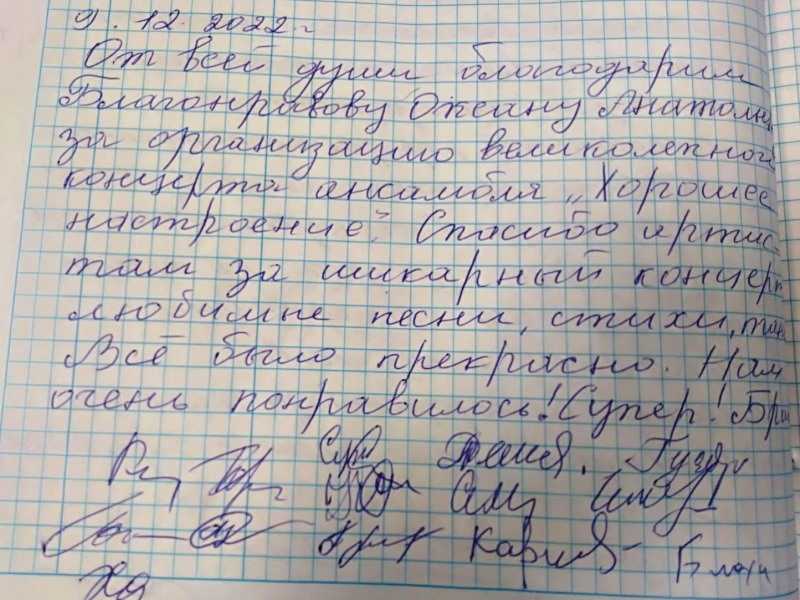 9.12.2022г
От всей души благодарим
Благонравову Оксану Анатольев
за организацию великолепного
концерта ансамбля „Хорошее
настроение". Спасибо артис-
там за шикарный концерт
любимые песни, стихи, тан
Всё было прекрасно. Нам
очень понравилось! Супер! Бра